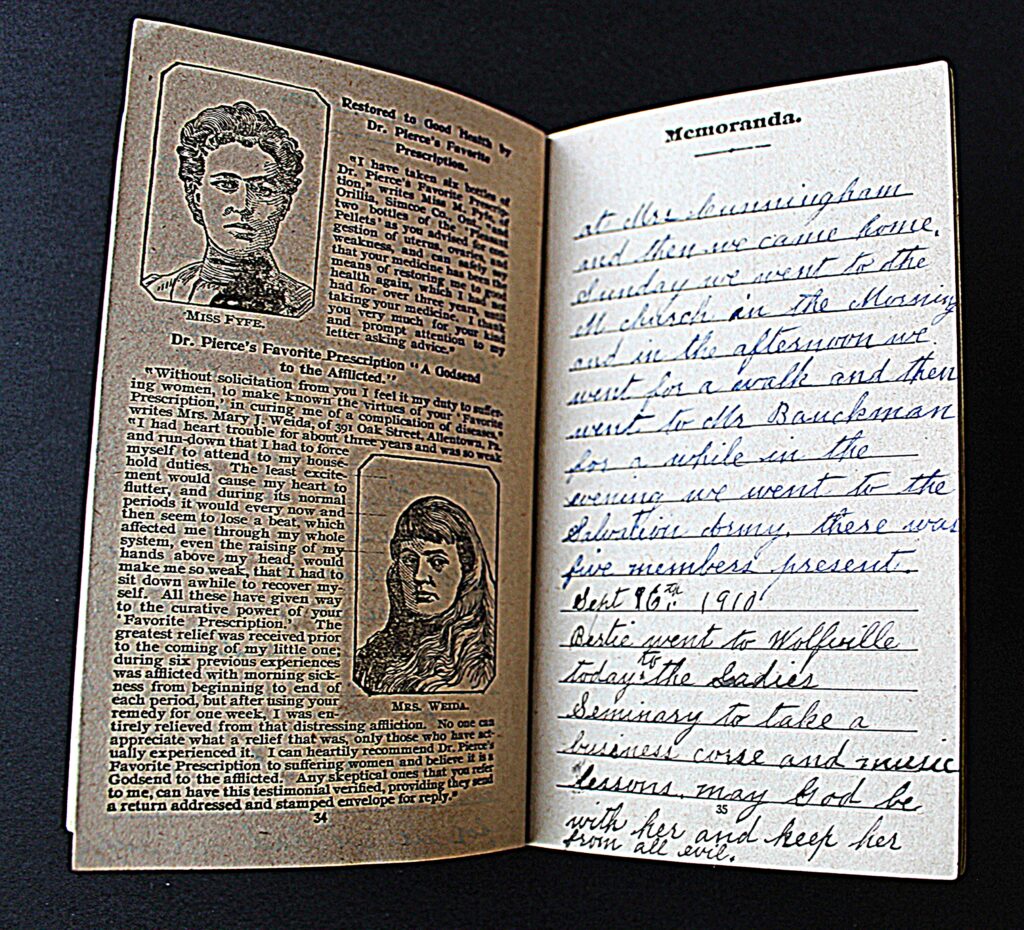 Restored to Good Health by
Dr. Pierce's Favorite
Prescription.
"I have taken six bottles of
Dr. Pierce's Favorite Prescrip-
tion," writes Miss M. Fyfe, of
Orillia, Simcoe Co., Ont., "and
two bottles of the 'Pleasant
Pellets' as you advised for con-
gestion of uterus, ovaries, and
weakness, and can safely say
that your medicine has been the
means of restoring me to good
health again, which I had not
had for over three years, until
taking your medicine. I thank
you very much for your kind
and prompt attention to my
letter asking advice."
MISS FYFE.
Dr. Pierce's Favorite Prescription "A Godsend
to the Afflicted."
"Without solicitation from you I feel it my duty to suffer-
ing women, to make known the virtues of your 'Favorite
Prescription' in curing me of a complication of diseases,"
writes Mrs. Mary J. Weida, of 391 Oak Street, Allentown, Pa.
"I had heart trouble for about three years and was so weak
and run-down that I had to force
myself to attend to my house-
hold duties. The least excite-
ment would cause my heart to
flutter, and during its normal
periods it would every now and
then seem to lose a beat, which
affected me through my whole
system, even the raising of my
hands above my head, would
make me so weak, that I had to
sit down awhile to recover my-
self. All these have given way
to the curative power of your
'Favorite Prescription.' The
greatest relief was received prior
to the coming of my little one;
during six previous experiences
was afflicted with morning sick-
ness from beginning to end of
each period, but after using your
remedy for one week, I was en-
tirely relieved from that distressing affliction. No one can
appreciate what a relief that was, only those who have act-
ually experienced it. I can heartily recommend Dr. Pierce's
Favorite Prescription to suffering women and believe it is a
Godsend to the afflicted. Any skeptical ones that you refer
to me, can have this testimonial verified, providing they send
a return addressed and stamped envelope for reply."
MRS. WEIDA.
34
Memoranda.
at Mrs Cunningham
and then we came home.
Sunday we went to the
M church in the Morning
and in the afternoon we
went for a walk and then
went to Mr Bauckman
for a while in the
evening we went to the
Salvation Army, there was
five members present.
Sept 16th 1910
Bertie went to Wolfville
today to the Ladies
Seminary to take a
business corse and music
lessons, may God be
35
with her and keep her
from all evil.